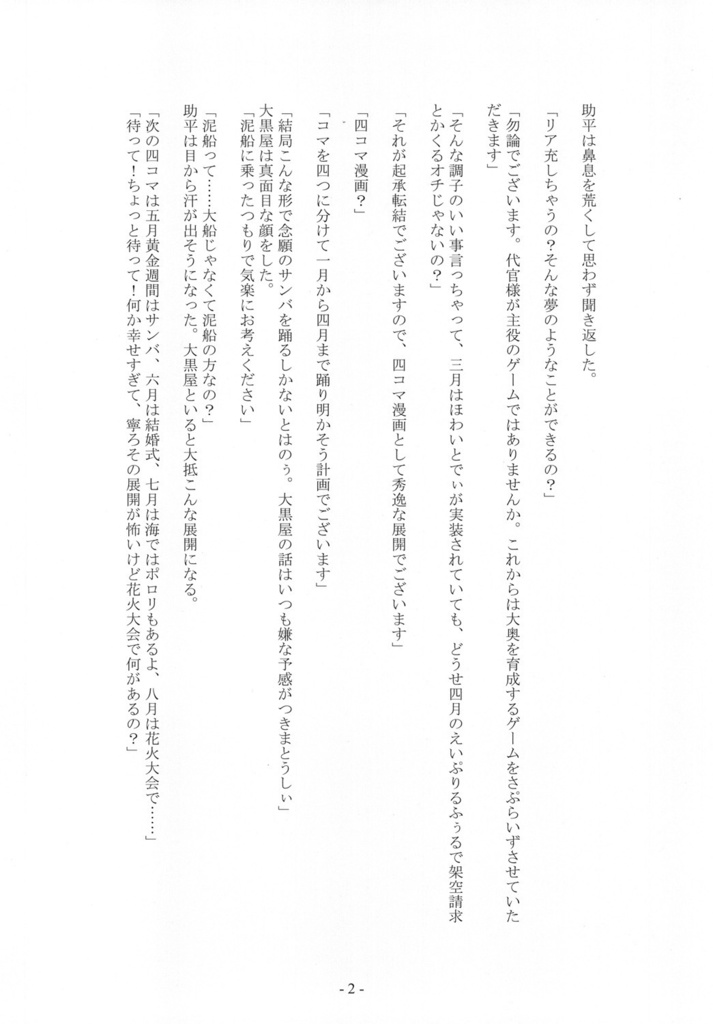 助平は鼻息を荒くして思わず聞き返した。
「リア充しちゃうの？そんな夢のようなことができるの？」
「勿論でございます。代官様が主役のゲームではありませんか。これからは大奥を育成するゲームをさぷらいずさせていた
だきます」
「そんな調子のいい事言っちゃって、三月はほわいとでぃが実装されていても、どうせ四月のえいぷりるふぅるで架空請求
とかくるオチじゃないの？」
「それが起承転結でございますので、四コマ漫画として秀逸な展開でございます」
「四コマ漫画？」
「コマを四つに分けて一月から四月まで踊り明かそう計画でございます」
「結局こんな形で念願のサンバを踊るしかないとはのぅ。大黒屋の話はいつも嫌な予感がつきまとうしぃ」
大黒屋は真面目な顔をした。
「泥船に乗ったつもりで気楽にお考えください」
「泥船って……大船じゃなくて泥船の方なの？」
助平は目から汗が出そうになった。大黒屋といると大抵こんな展開になる。
「次の四コマは五月黄金週間はサンバ、六月は結婚式、七月は海ではポロリもあるよ、八月は花火大会で……」
「待って！ちょっと待って！何か幸せすぎて、寧ろその展開が怖いけど花火大会で何があるの？」
- 2 -